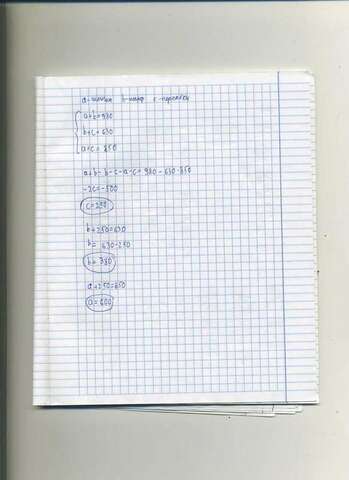 a - b - c - персики
a+b=980
b+c=630
a+c=850
a+b-b-c-a-c=980-630-850
-2c=-500
c=250
b+250=630
b=630-250
b=380
a+250=850
a=600